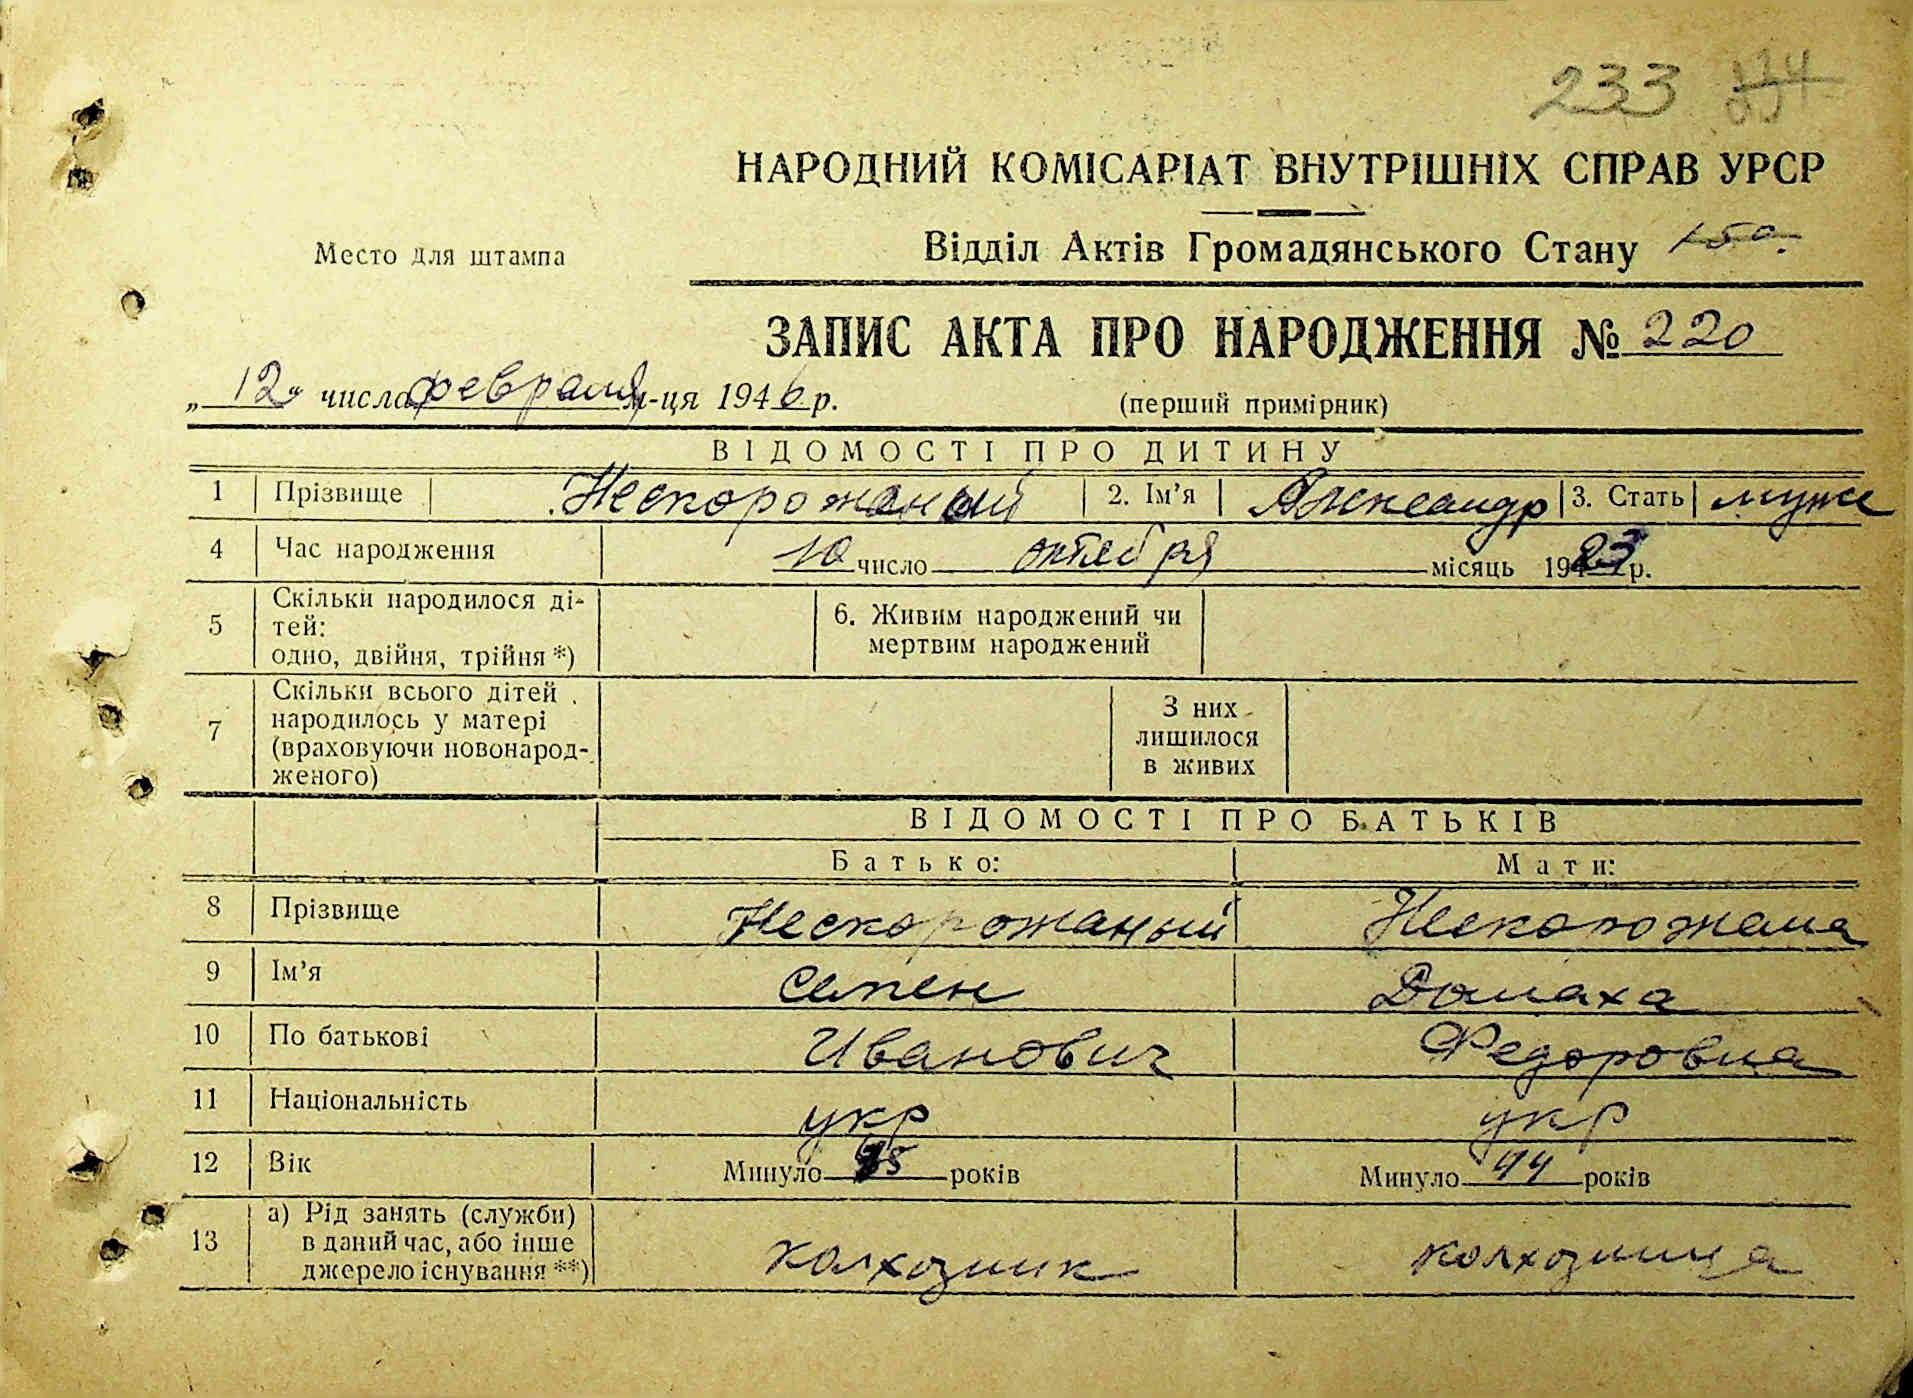 233
НАРОДНИЙ КОМІСАРІАТ ВНУТРІШНІХ СПРАВ УРСР
Место для штампа
Відділ Актів Громадянського Стану
ЗАПИС АКТА ПРО НАРОДЖЕННЯ № 220
„12“ числа февраля м-ця 1946 р.
(перший примірник)
ВІДОМОСТІ ПРО ДИТИНУ
1 Прізвище Нескорожаный 2. Ім’я Александр 3. Стать муж
4 Час народження 10 число октября місяць 1923 р.
5 Скільки народилося ді-
тей:
одно, двійня, трійня *)
6. Живим народжений чи
мертвим народжений
7 Скільки всього дітей
народилось у матері
(враховуючи новонарод-
женого)
З них
лишилося
в живих
ВІДОМОСТІ ПРО БАТЬКІВ
Батько: Мати:
8 Прізвище Нескорожаный Нескорожана
9 Ім’я Семен Домаха
10 По батькові Иванович Федоровна
11 Національність укр укр
12 Вік Минуло років Минуло 44 років
13 а) Рід занять (служби)
в даний час, або інше
джерело існування **)
колхозник колхозница